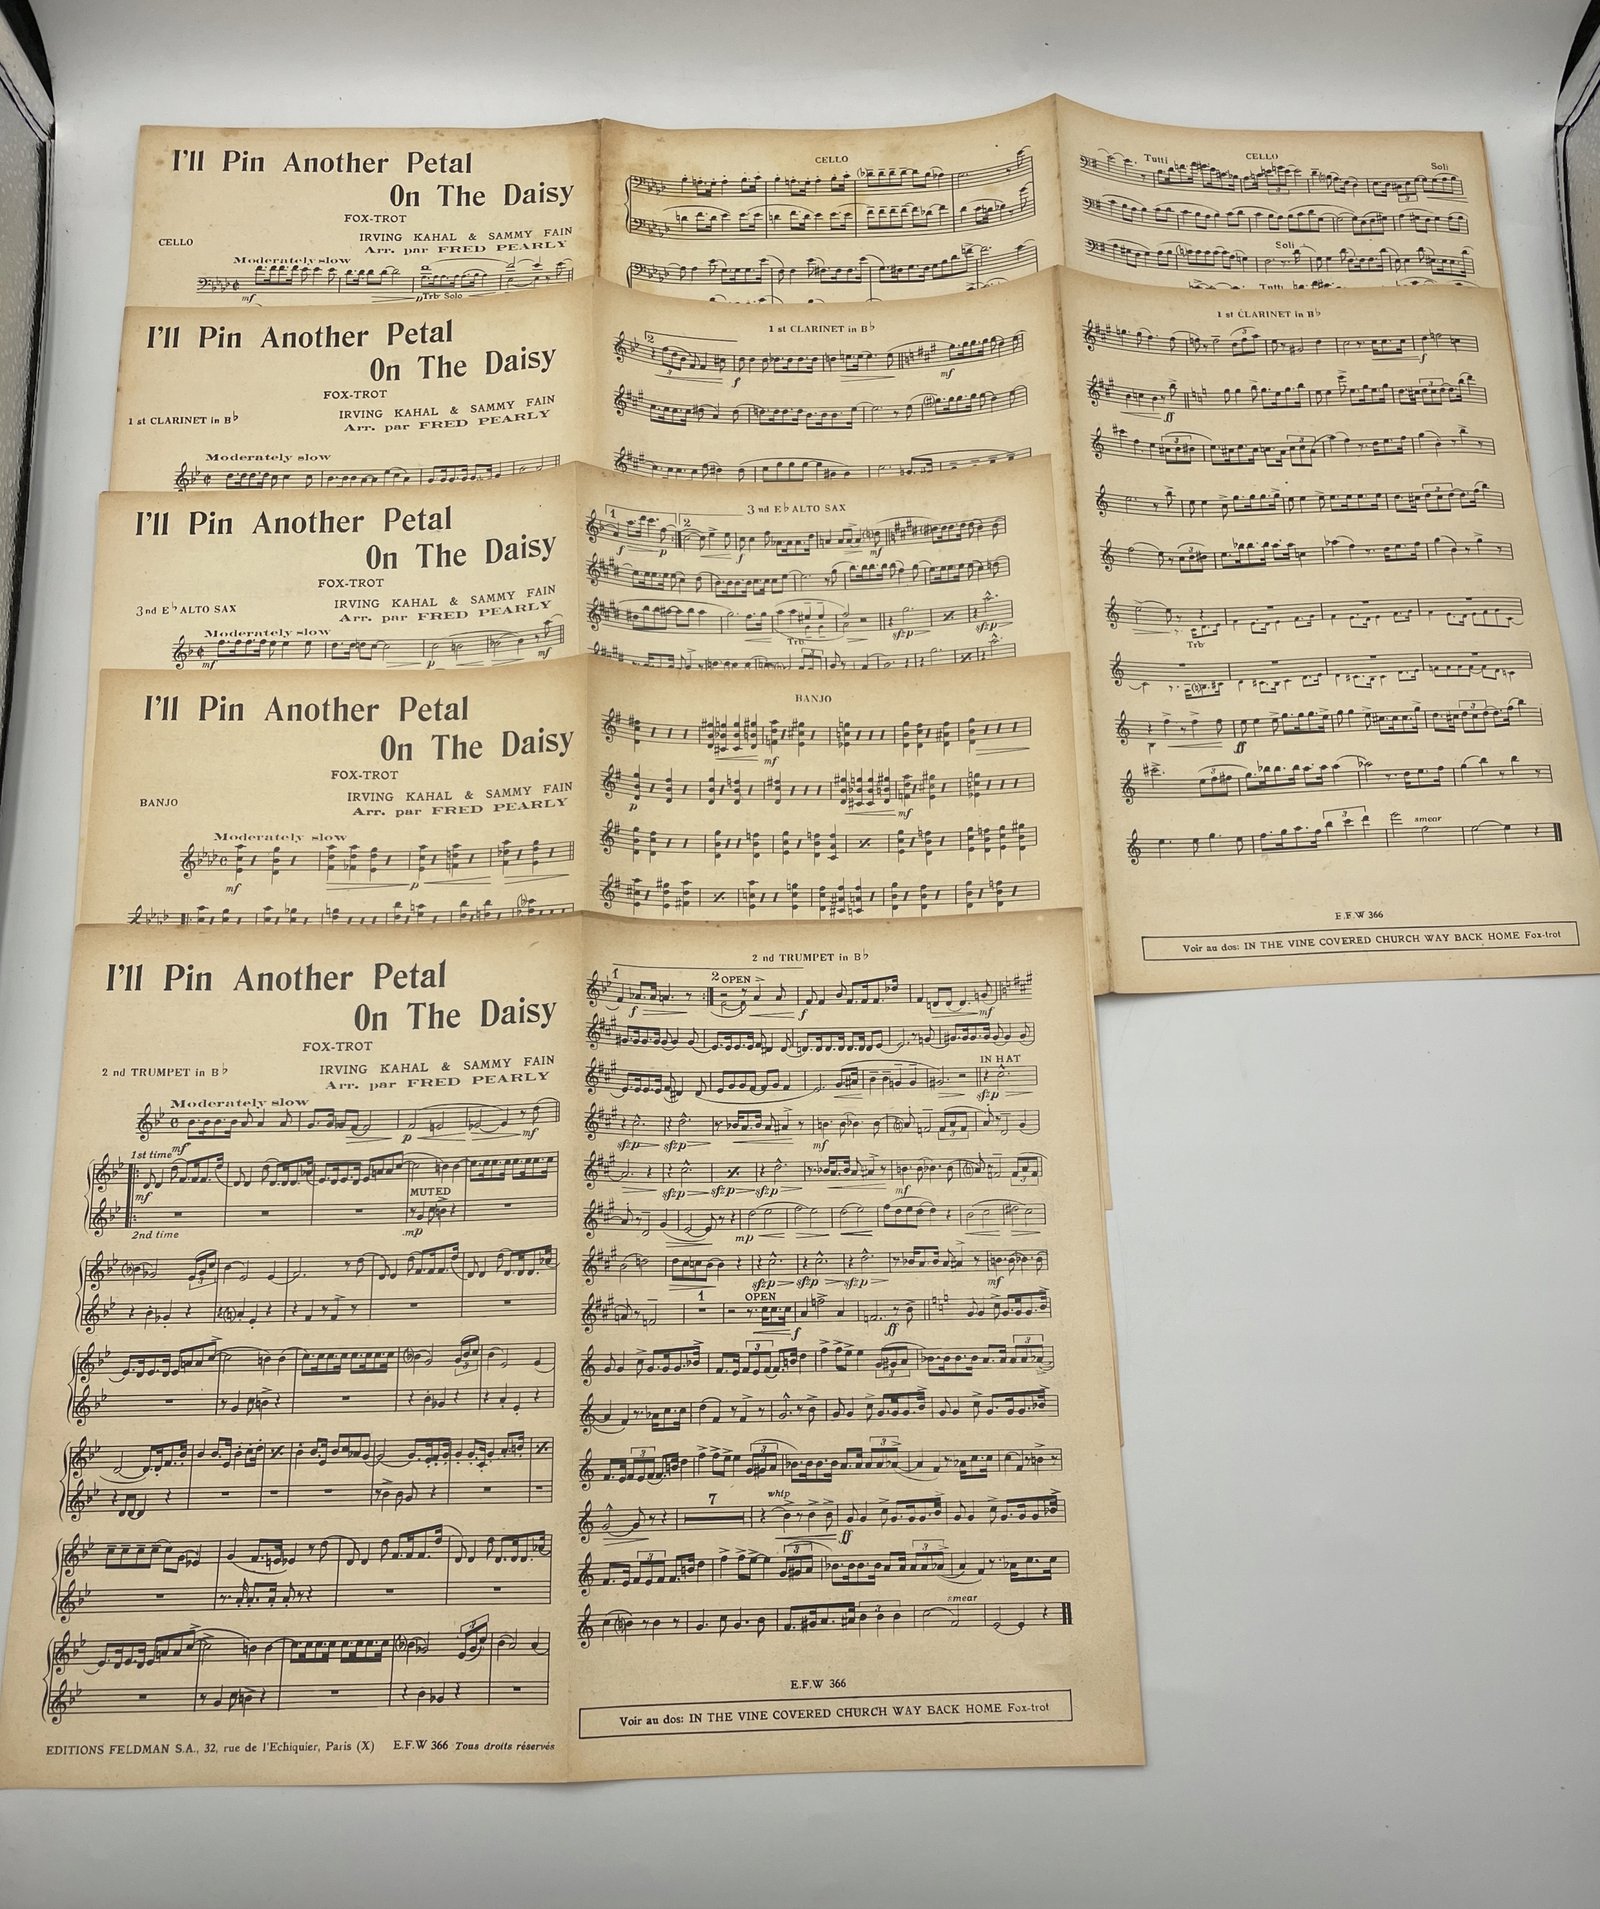 I'll Pin Another Petal
On The Daisy
FOX-TROT
CELLO
IRVING KAHAL & SAMMY FAIN
Arr. par FRED PEARLY
Moderately slow
mf
p Trb Solo
CELLO
CELLO
Tutti
Soli
Soli
Tutti
I'll Pin Another Petal
On The Daisy
FOX-TROT
1 st CLARINET in B♭
IRVING KAHAL & SAMMY FAIN
Arr. par FRED PEARLY
Moderately slow
1 st CLARINET in B♭
2
f
mf
1 st CLARINET in B♭
3
f
ff
3
3
3
3
3
Trb
3
p
ff
3
3
3
smear
E.F.W 366
Voir au dos: IN THE VINE COVERED CHURCH WAY BACK HOME Fox-trot
I'll Pin Another Petal
On The Daisy
FOX-TROT
3nd E♭ ALTO SAX
IRVING KAHAL & SAMMY FAIN
Arr. par FRED PEARLY
Moderately slow
mf
p
mf
3 nd E♭ ALTO SAX
1
2
f
p
f
mf
Trb
sfzp
sfzp
3
I'll Pin Another Petal
On The Daisy
FOX-TROT
BANJO
IRVING KAHAL & SAMMY FAIN
Arr. par FRED PEARLY
Moderately slow
mf
p
BANJO
mf
p
mf
I'll Pin Another Petal
On The Daisy
FOX-TROT
2 nd TRUMPET in B♭
IRVING KAHAL & SAMMY FAIN
Arr. par FRED PEARLY
Moderately slow
mf
p
mf
1st time
mf
MUTED
2nd time
mp
3
3
3
EDITIONS FELDMAN S.A., 32, rue de l'Echiquier, Paris (X) E.F.W 366 Tous droits réservés
2 nd TRUMPET in B♭
1
2 OPEN
f
f
mf
IN HAT
sfzp
sfzp sfzp
mf
3
sfzp sfzp sfzp
mf
3
mp
sfzp sfzp sfzp
mf
1
OPEN
f
ff
3
3
3
3
3
3
7
whip
ff
3
3
3
3
smear
E.F.W 366
Voir au dos: IN THE VINE COVERED CHURCH WAY BACK HOME Fox-trot